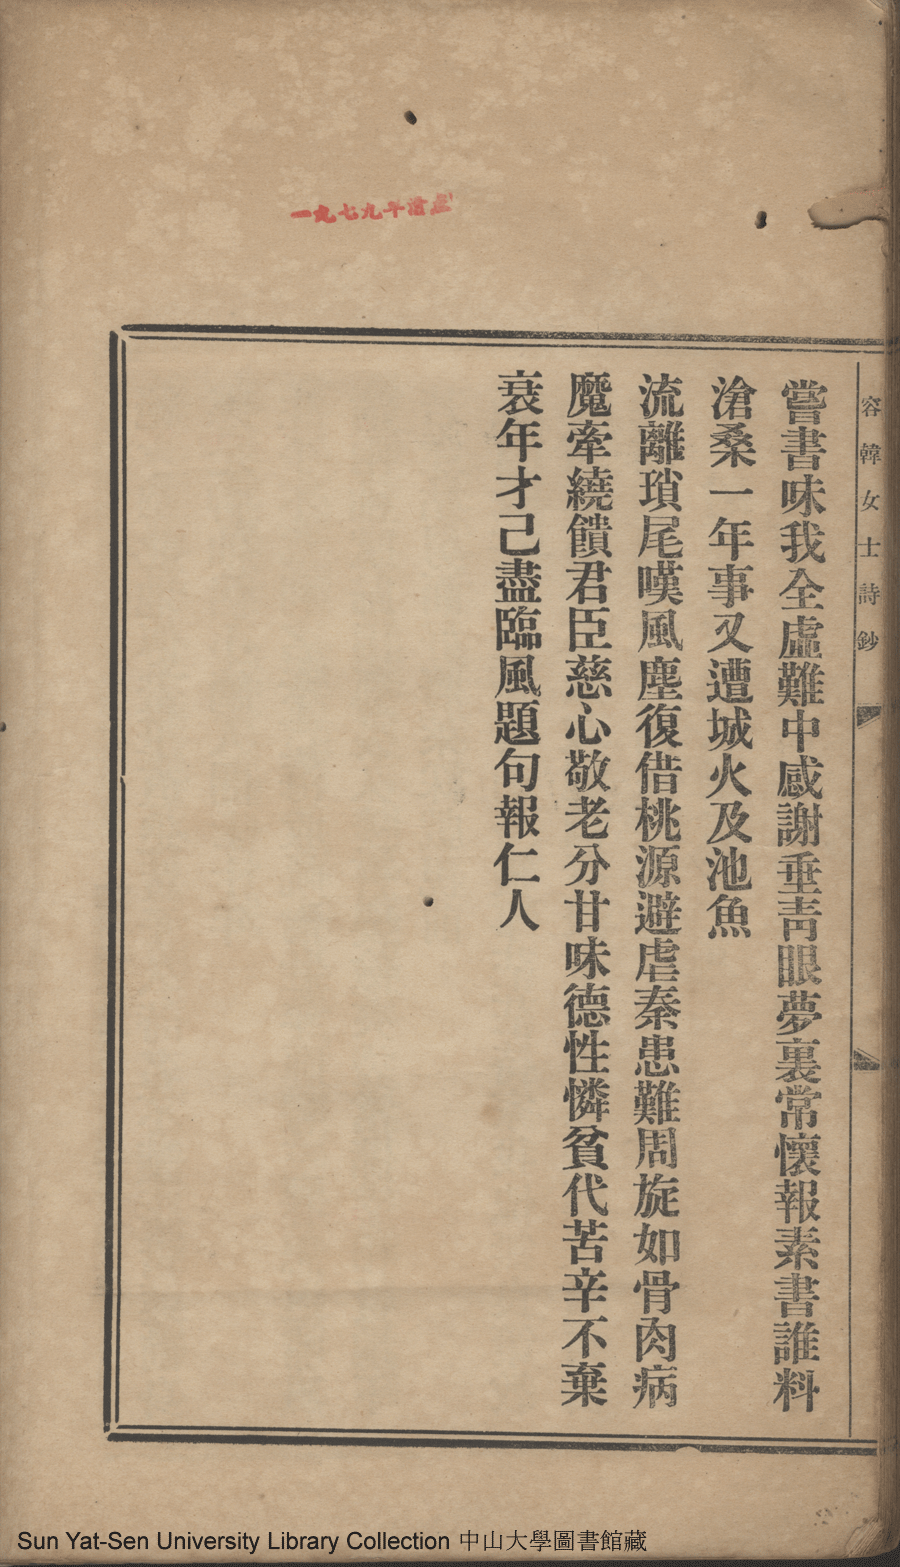 一九七九年清產
容韓女士詩鈔
嘗書味我全虛難中感謝垂靑眼夢裏常懷報素書誰料
滄桑一年事又遭城火及池魚
流離瑣尾嘆風塵復借桃源避虐秦患難周旋如骨肉病
魔牽繞饋君臣慈心敬老分甘味德性憐貧代苦辛不棄
衰年才己盡臨風題句報仁人
Sun Yat-Sen University Library Collection 中山大學圖書館藏